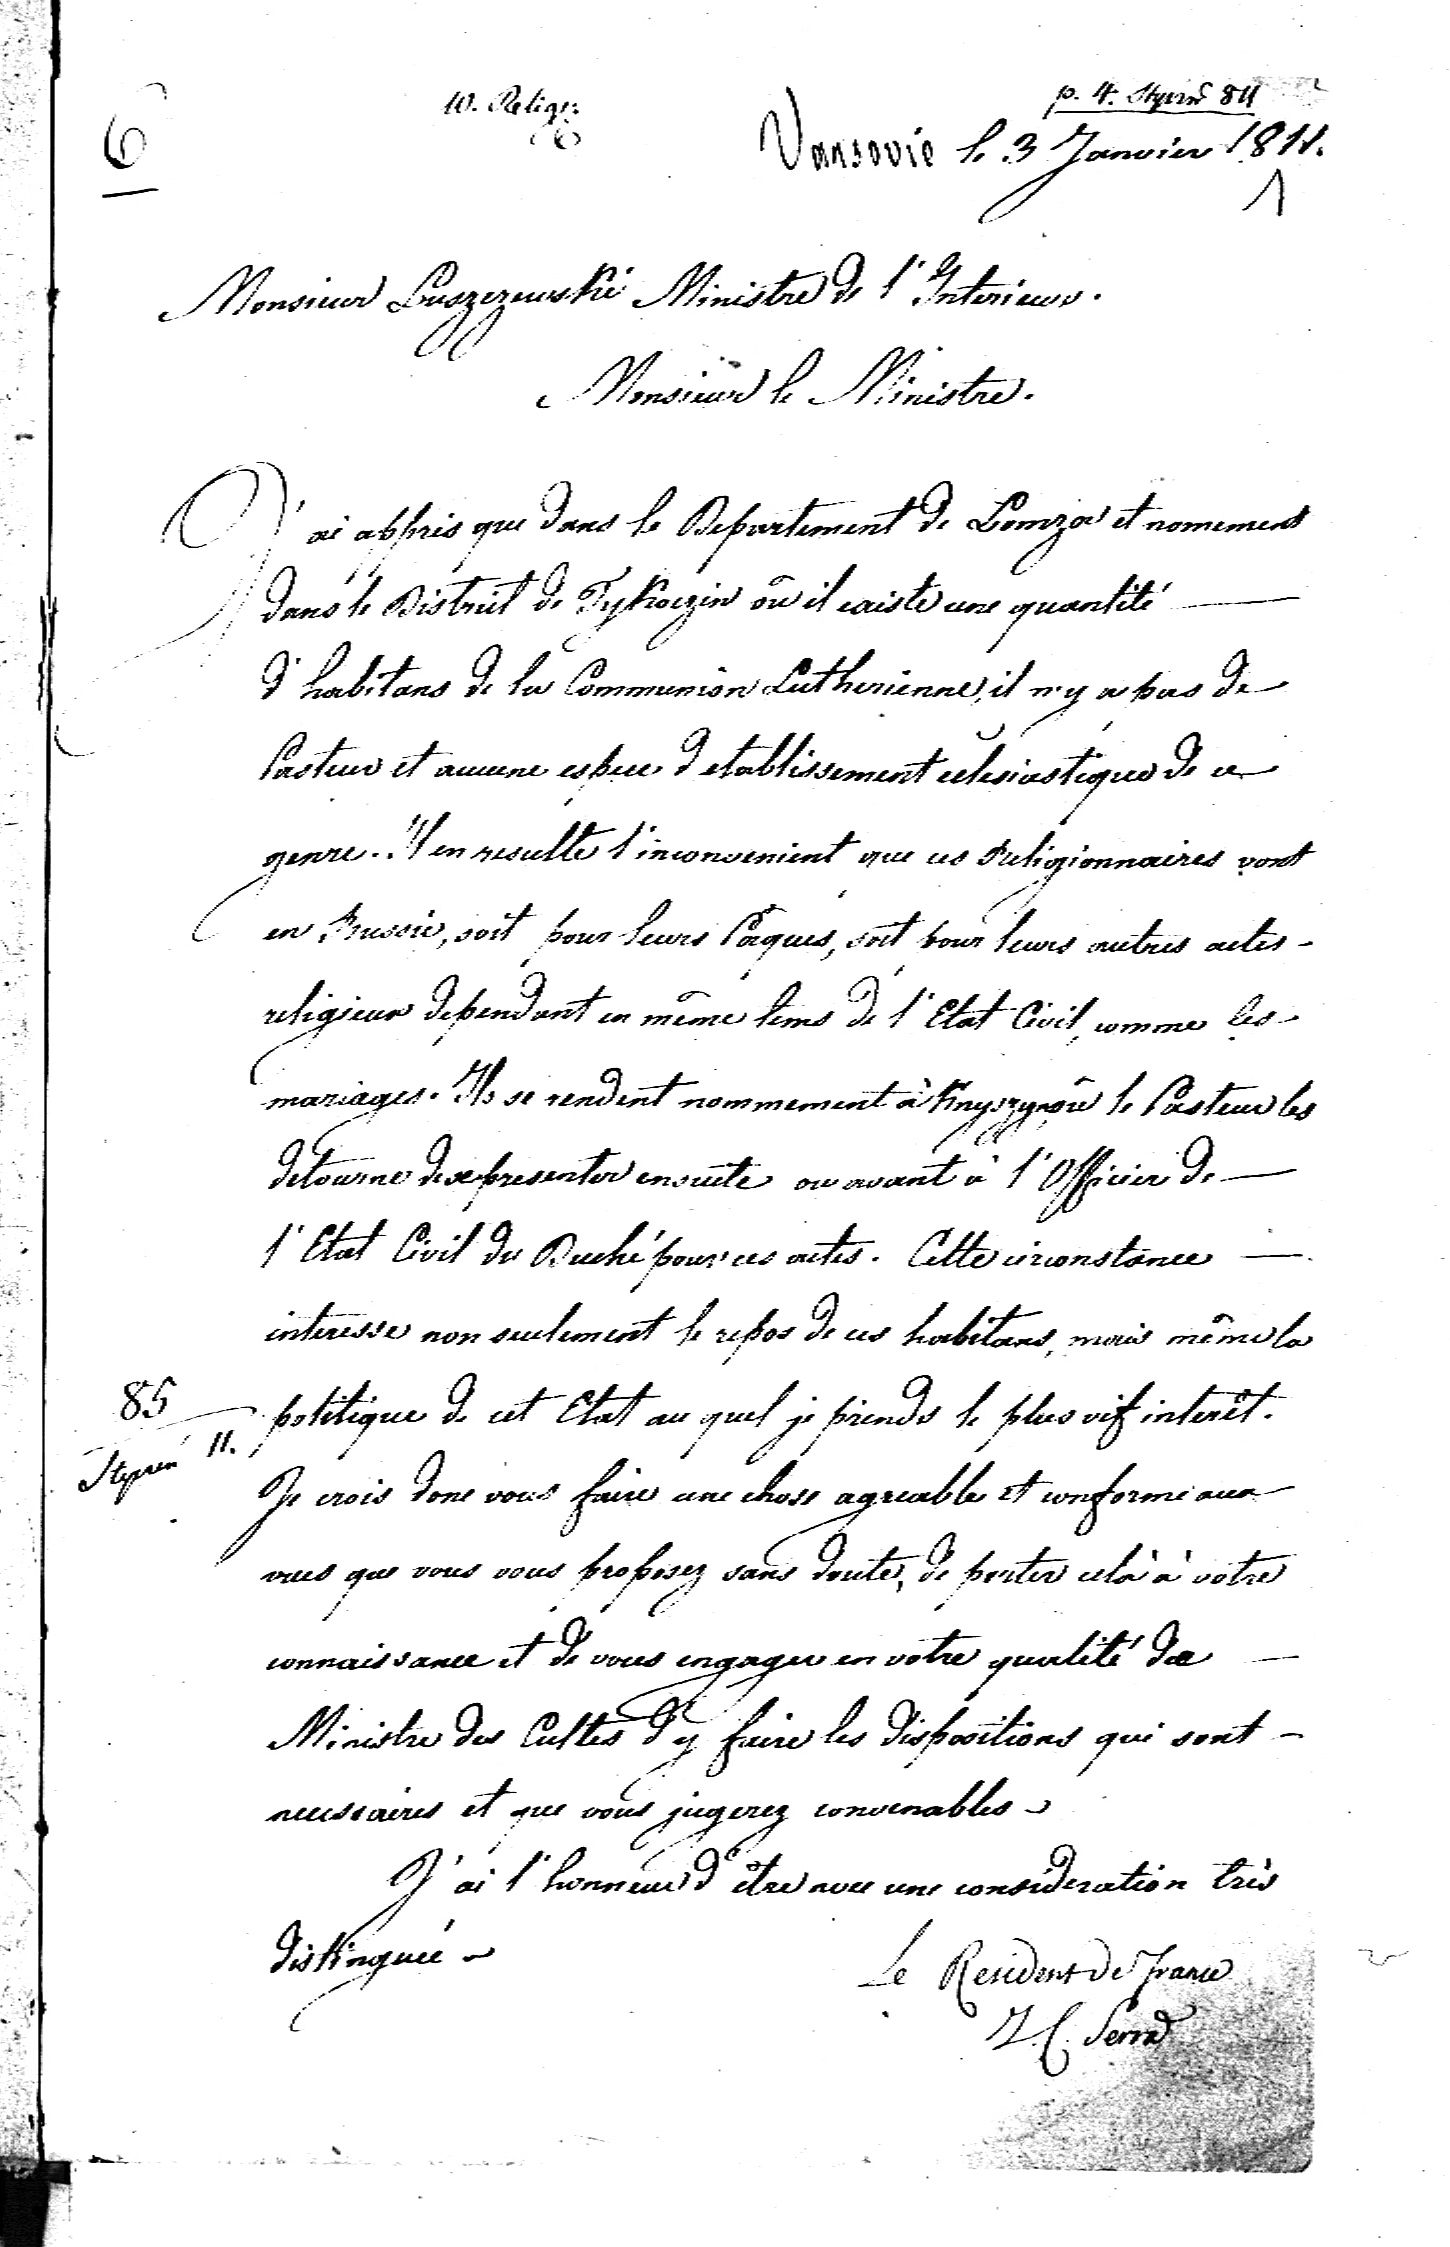 6
W. Relig:
p. 4. Stycznia 811
Varsovie le 3 Janvier 1811.
1
Monsieur Luszczewski Ministre de l'Interieur.
Monsieur le Ministre.
J'ai appris que dans le Departement de Lomza et nomement
dans le District de Tykoczin où il existe une quantité
d'habitans de la Communion Lutherienne, il n'y a pas de
Pasteur et aucune espece d'etablissement eclesiastique de ce
genre. Il en resulte l'inconvenient que ces Religionnaires vont
en Russie, soit pour leurs Pâques, soit pour leurs autres actes
religieux dependant en même tems de l'Etat Civil, comme les
mariages. Ils se rendent nommement à Knyszyn où le Pasteur les
detourne de se presenter ensuite ou avant à l'Officier de
l'Etat Civil du Duché pour ces actes. Cette circonstance
interesse non seulement le repos de ces habitans, mais même la
politique de cet Etat au quel je prends le plus vif interêt.
85
Stycznia 11.
Je crois donc vous faire une chose agreable et conforme aux
vues que vous vous proposez sans doute, de porter celà à votre
connaissance et de vous engager en votre qualité de
Ministre des Cultes d'y faire les dispositions qui sont
necessaires et que vous jugerez convenables
J'ai l'honneur d'être avec une consideration très
distinguée
Le Resident de France
J. C. Serra